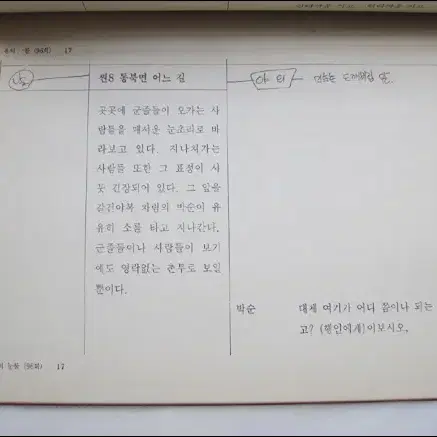 17
낮
씬8 동북면 어느 길
야 외
곳곳에 군졸들이 오가는 사
람들을 매서운 눈초리로 바
라보고 있다. 지나쳐가는
사람들 또한 그 표정이 사
뭇 긴장되어 있다. 그 앞을
걸인아복 차림의 박순이 유
유히 소를 타고 지나간다.
군졸들이나 사람들이 보기
에도 영락없는 촌부로 보일
뿐이다.
박순
대체 여기가 어디 쯤이나 되는
고? (행인에게)이보시오,
의 눈물 (96회) 17